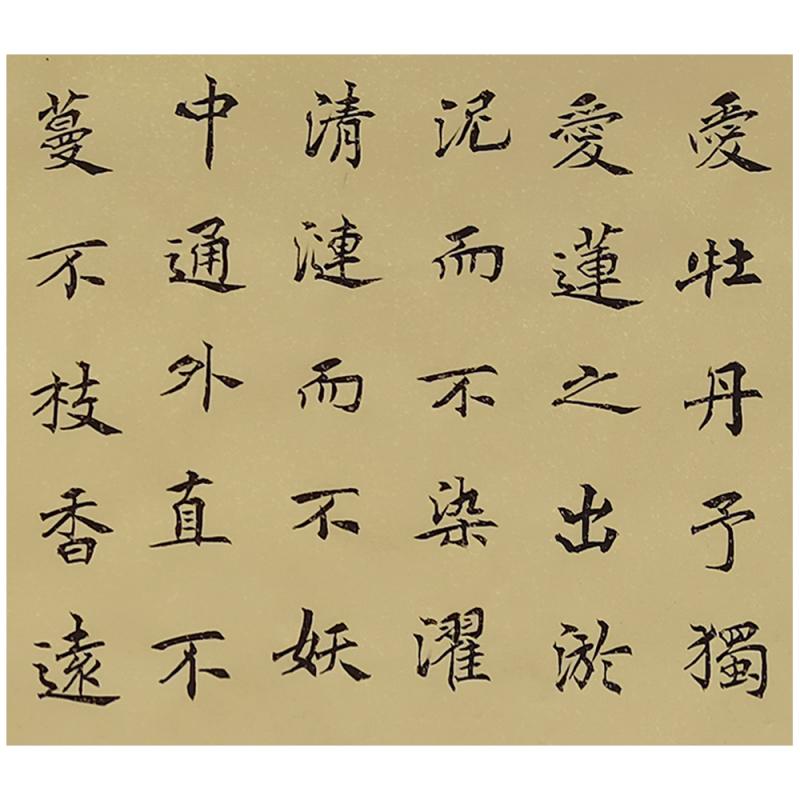 愛牡丹予獨
愛蓮之出淤
泥而不染濯
清漣而不妖
中通外直不
蔓不枝香遠